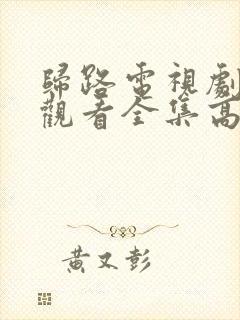 歸路電視劇
觀看全集高
黃又彭